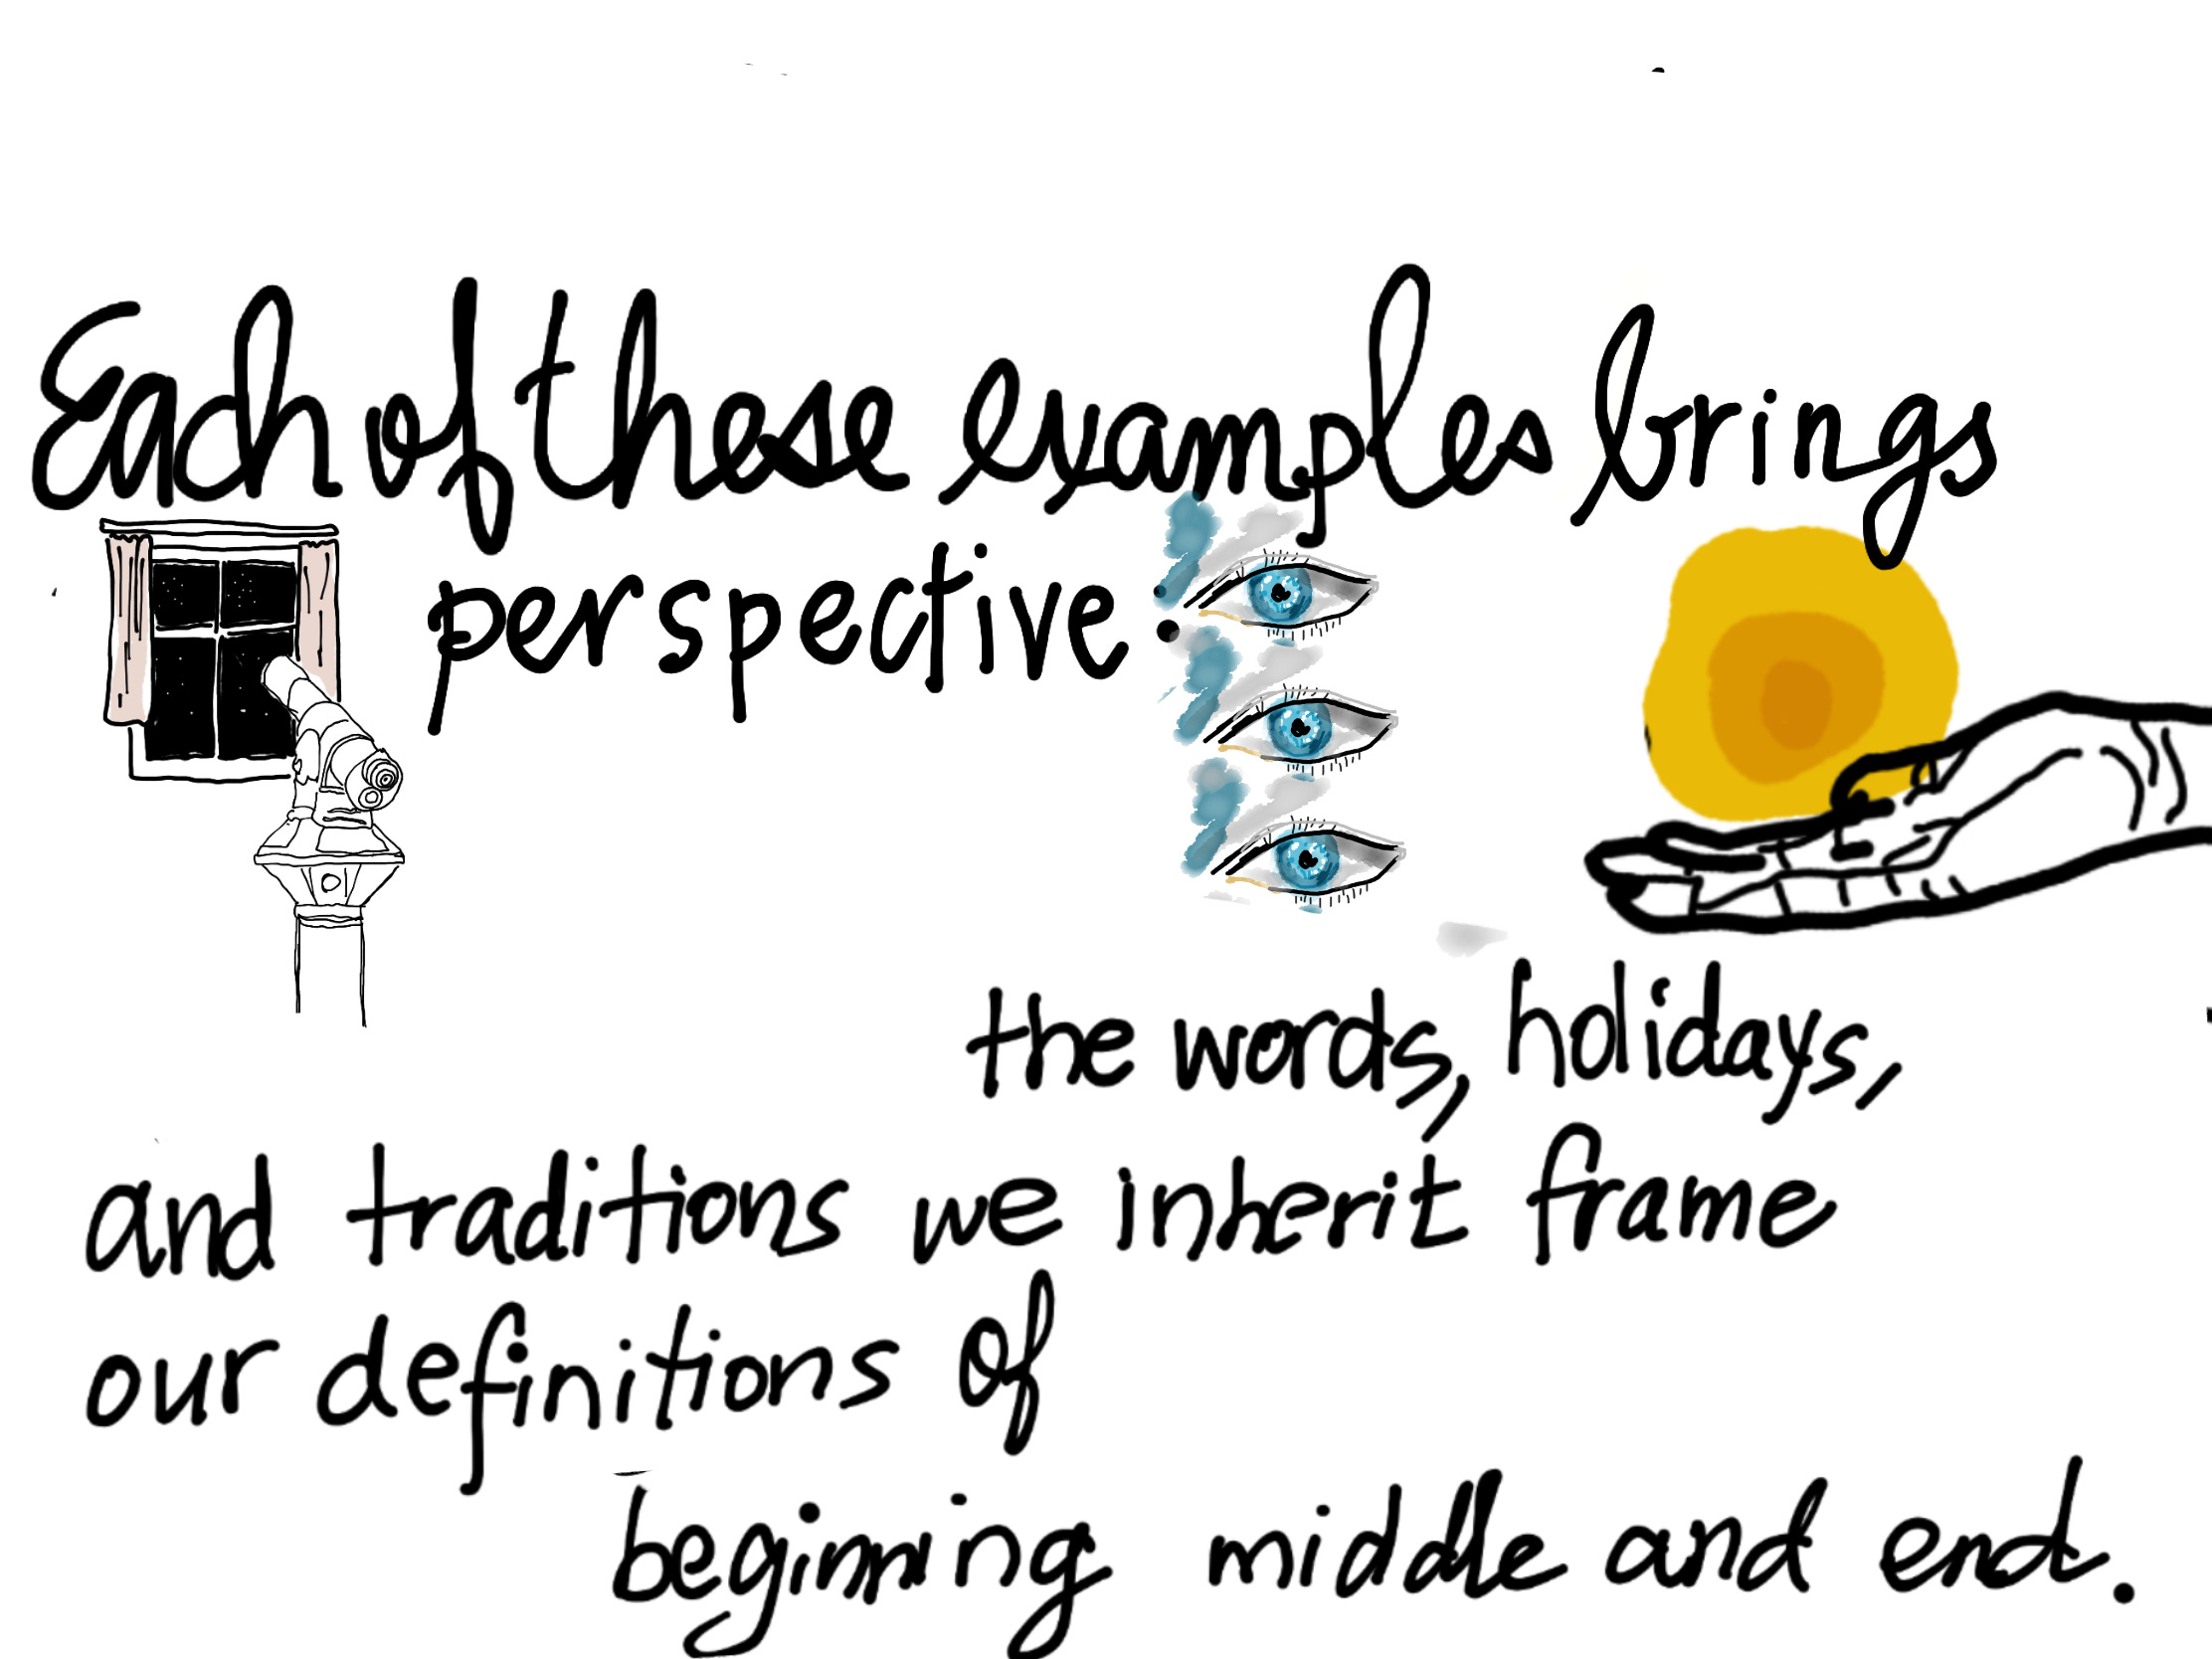 Each of these examples brings
perspective:
the words, holidays,
and traditions we inherit frame
our definitions of
beginning middle and end.